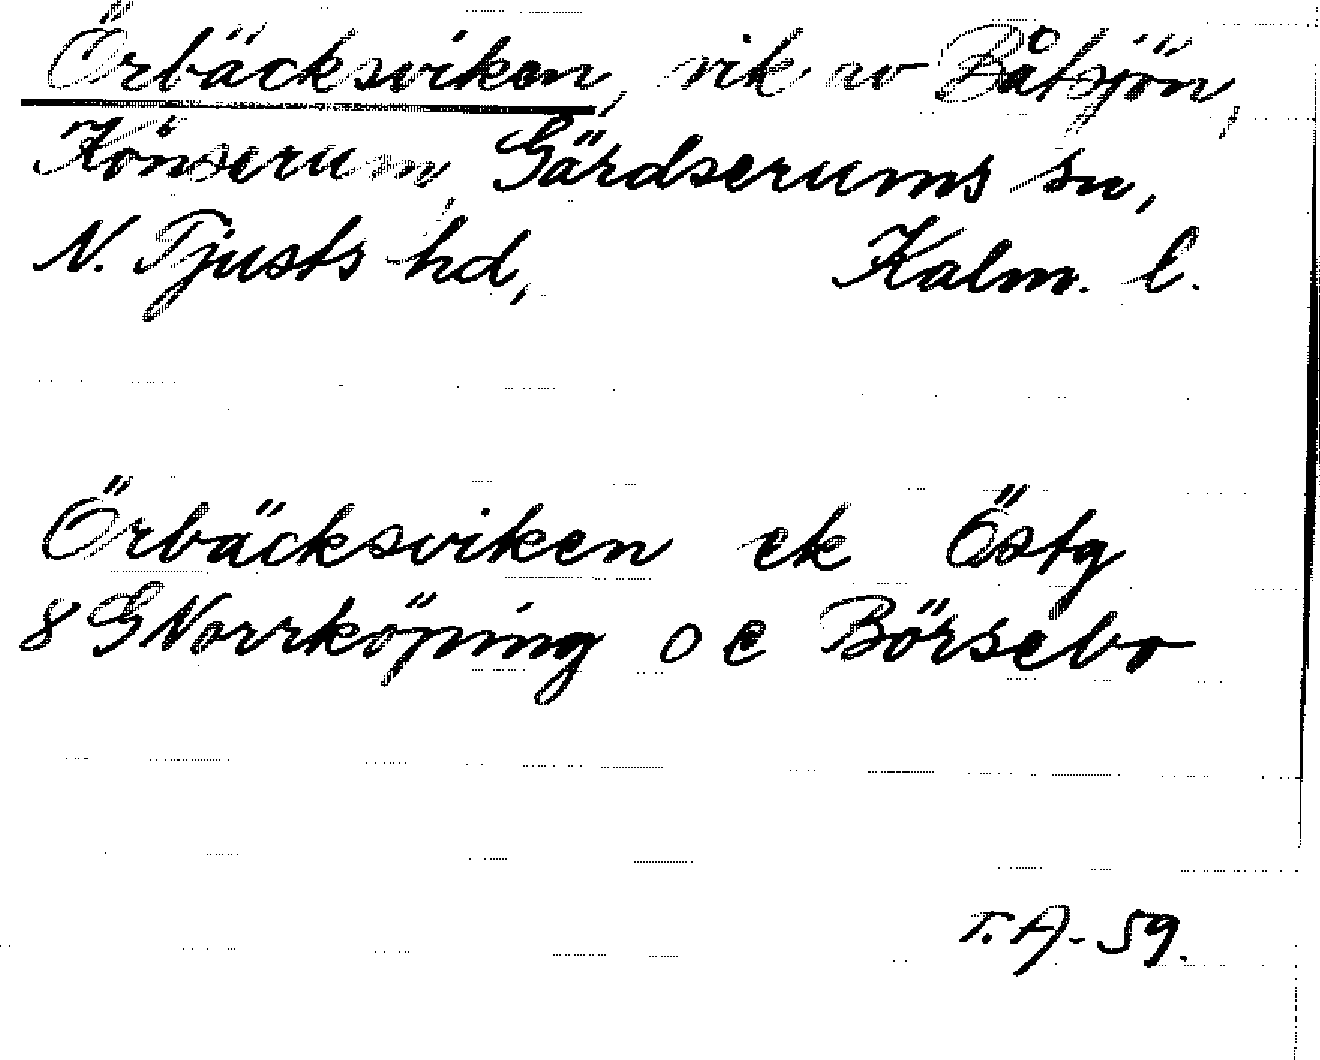 Örbäcksviken, vik av Båtsjön,
Könserum, Gärdserums sn,
N. Tjusts hd, Kalm. l.
Örbäcksviken ek Östg
8 G Norrköping o e Börsebo
T. A. - 59.